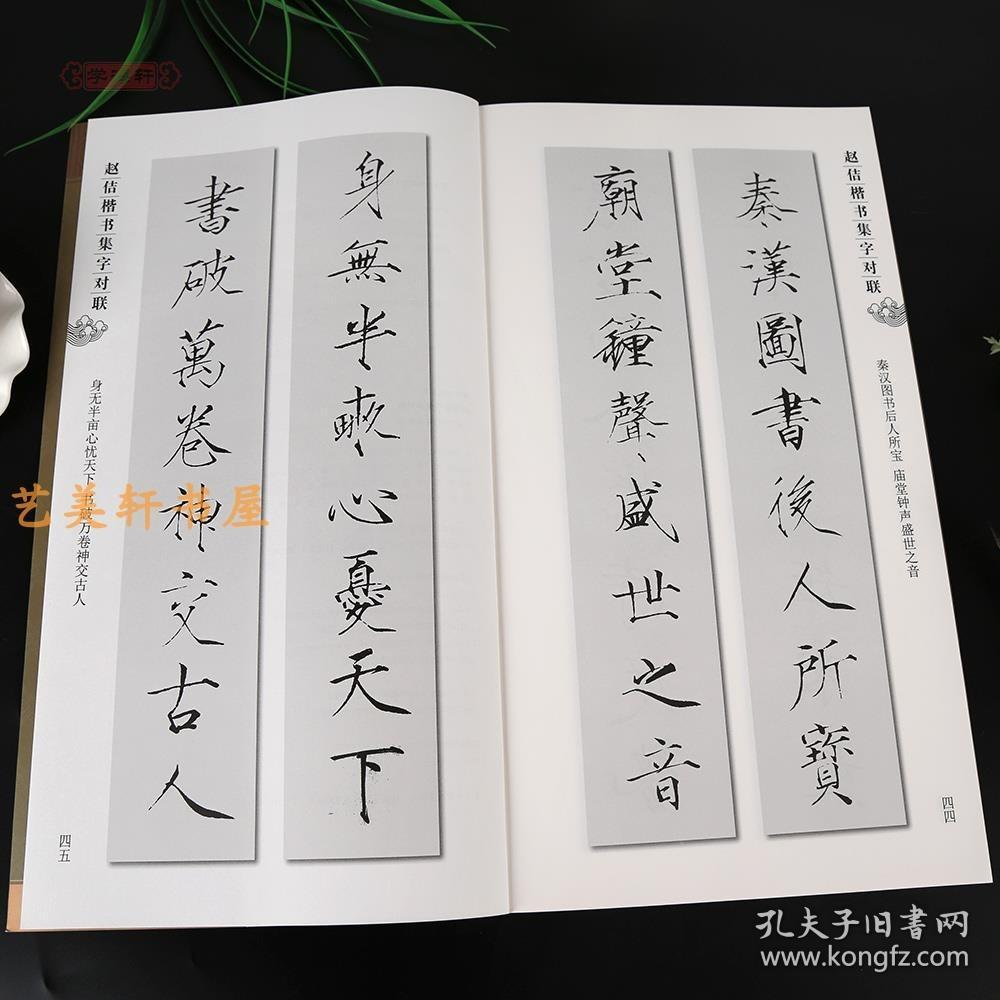 学美轩
赵佶楷书集字对联
秦漢圖書後人所寶
廟堂鐘聲盛世之音
秦汉图书后人所宝 庙堂钟声盛世之音
四四
身無半畝心憂天下
書破萬卷神交古人
赵佶楷书集字对联
身无半亩心忧天下 书破万卷神交古人
四五
艺美轩书屋
孔夫子旧书网
www.kongfz.com